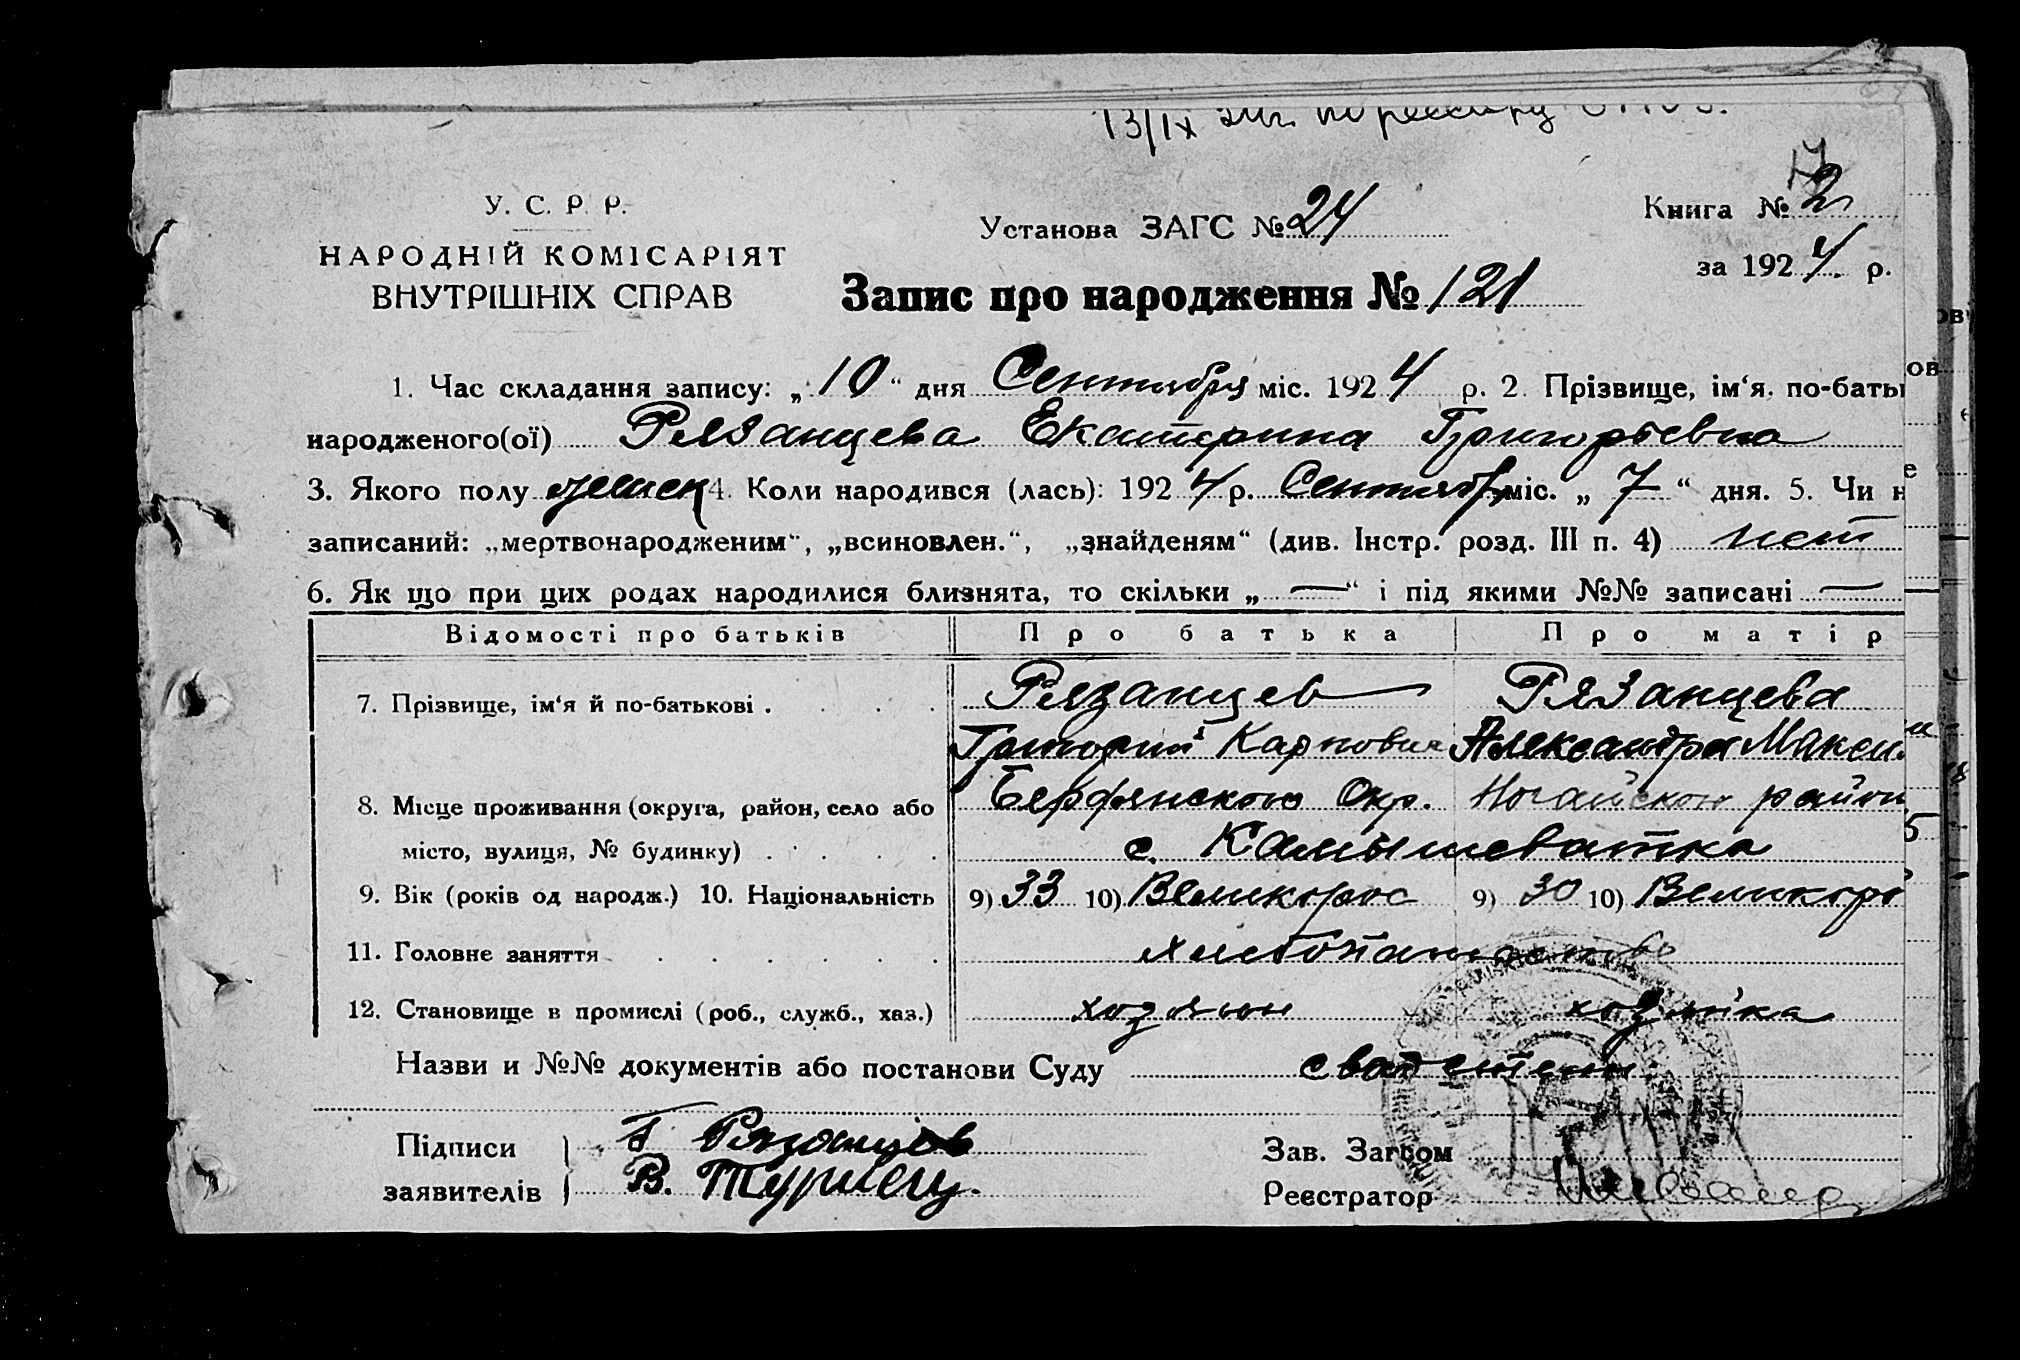 13/IX
17
У. С. Р. Р.
НАРОДНІЙ КОМІСАРІЯТ
ВНУТРІШНІХ СПРАВ
Установа ЗАГС № 24
Книга № 2
за 1924 р.
Запис про народження № 121
1. Час складання запису: „10“ дня Сентября міс. 1924 р. 2. Прізвище, ім‘я, по-баты
народженого(ої) Рязанцева Екатерина Григорьевна
3. Якого полу женск 4. Коли народився (лась): 1924 р. Сентябр міс. „7“ дня. 5. Чи н
записаний: „мертвонародженим“, „всиновлен.“, „знайденям“ (див. Інстр. розд. III п. 4) нет
6. Як що при цих родах народилися близнята, то скільки „—“ і під якими №№ записані —
Відомості про батьків Про батька Про матір
7. Прізвище, ім‘я й по-батькові . Рязанцев Рязанцева
Григорий Карпович Александра Макси
8. Місце проживання (округа, район, село або Бердянского Окр. Ногайского район
місто, вулиця, № будинку) . с. Камышеватка
9. Вік (років од народж.) 10. Національність 9) 33 10) Великорос 9) 30 10) Великоро
11. Головне заняття хлебопашество
12. Становище в промислі (роб., служб., хаз.) хозяин хозяйка
Назви и №№ документів або постанови Суду
Підписи Г Рязанцев Зав. Загсом
заявителів В. Реєстратор